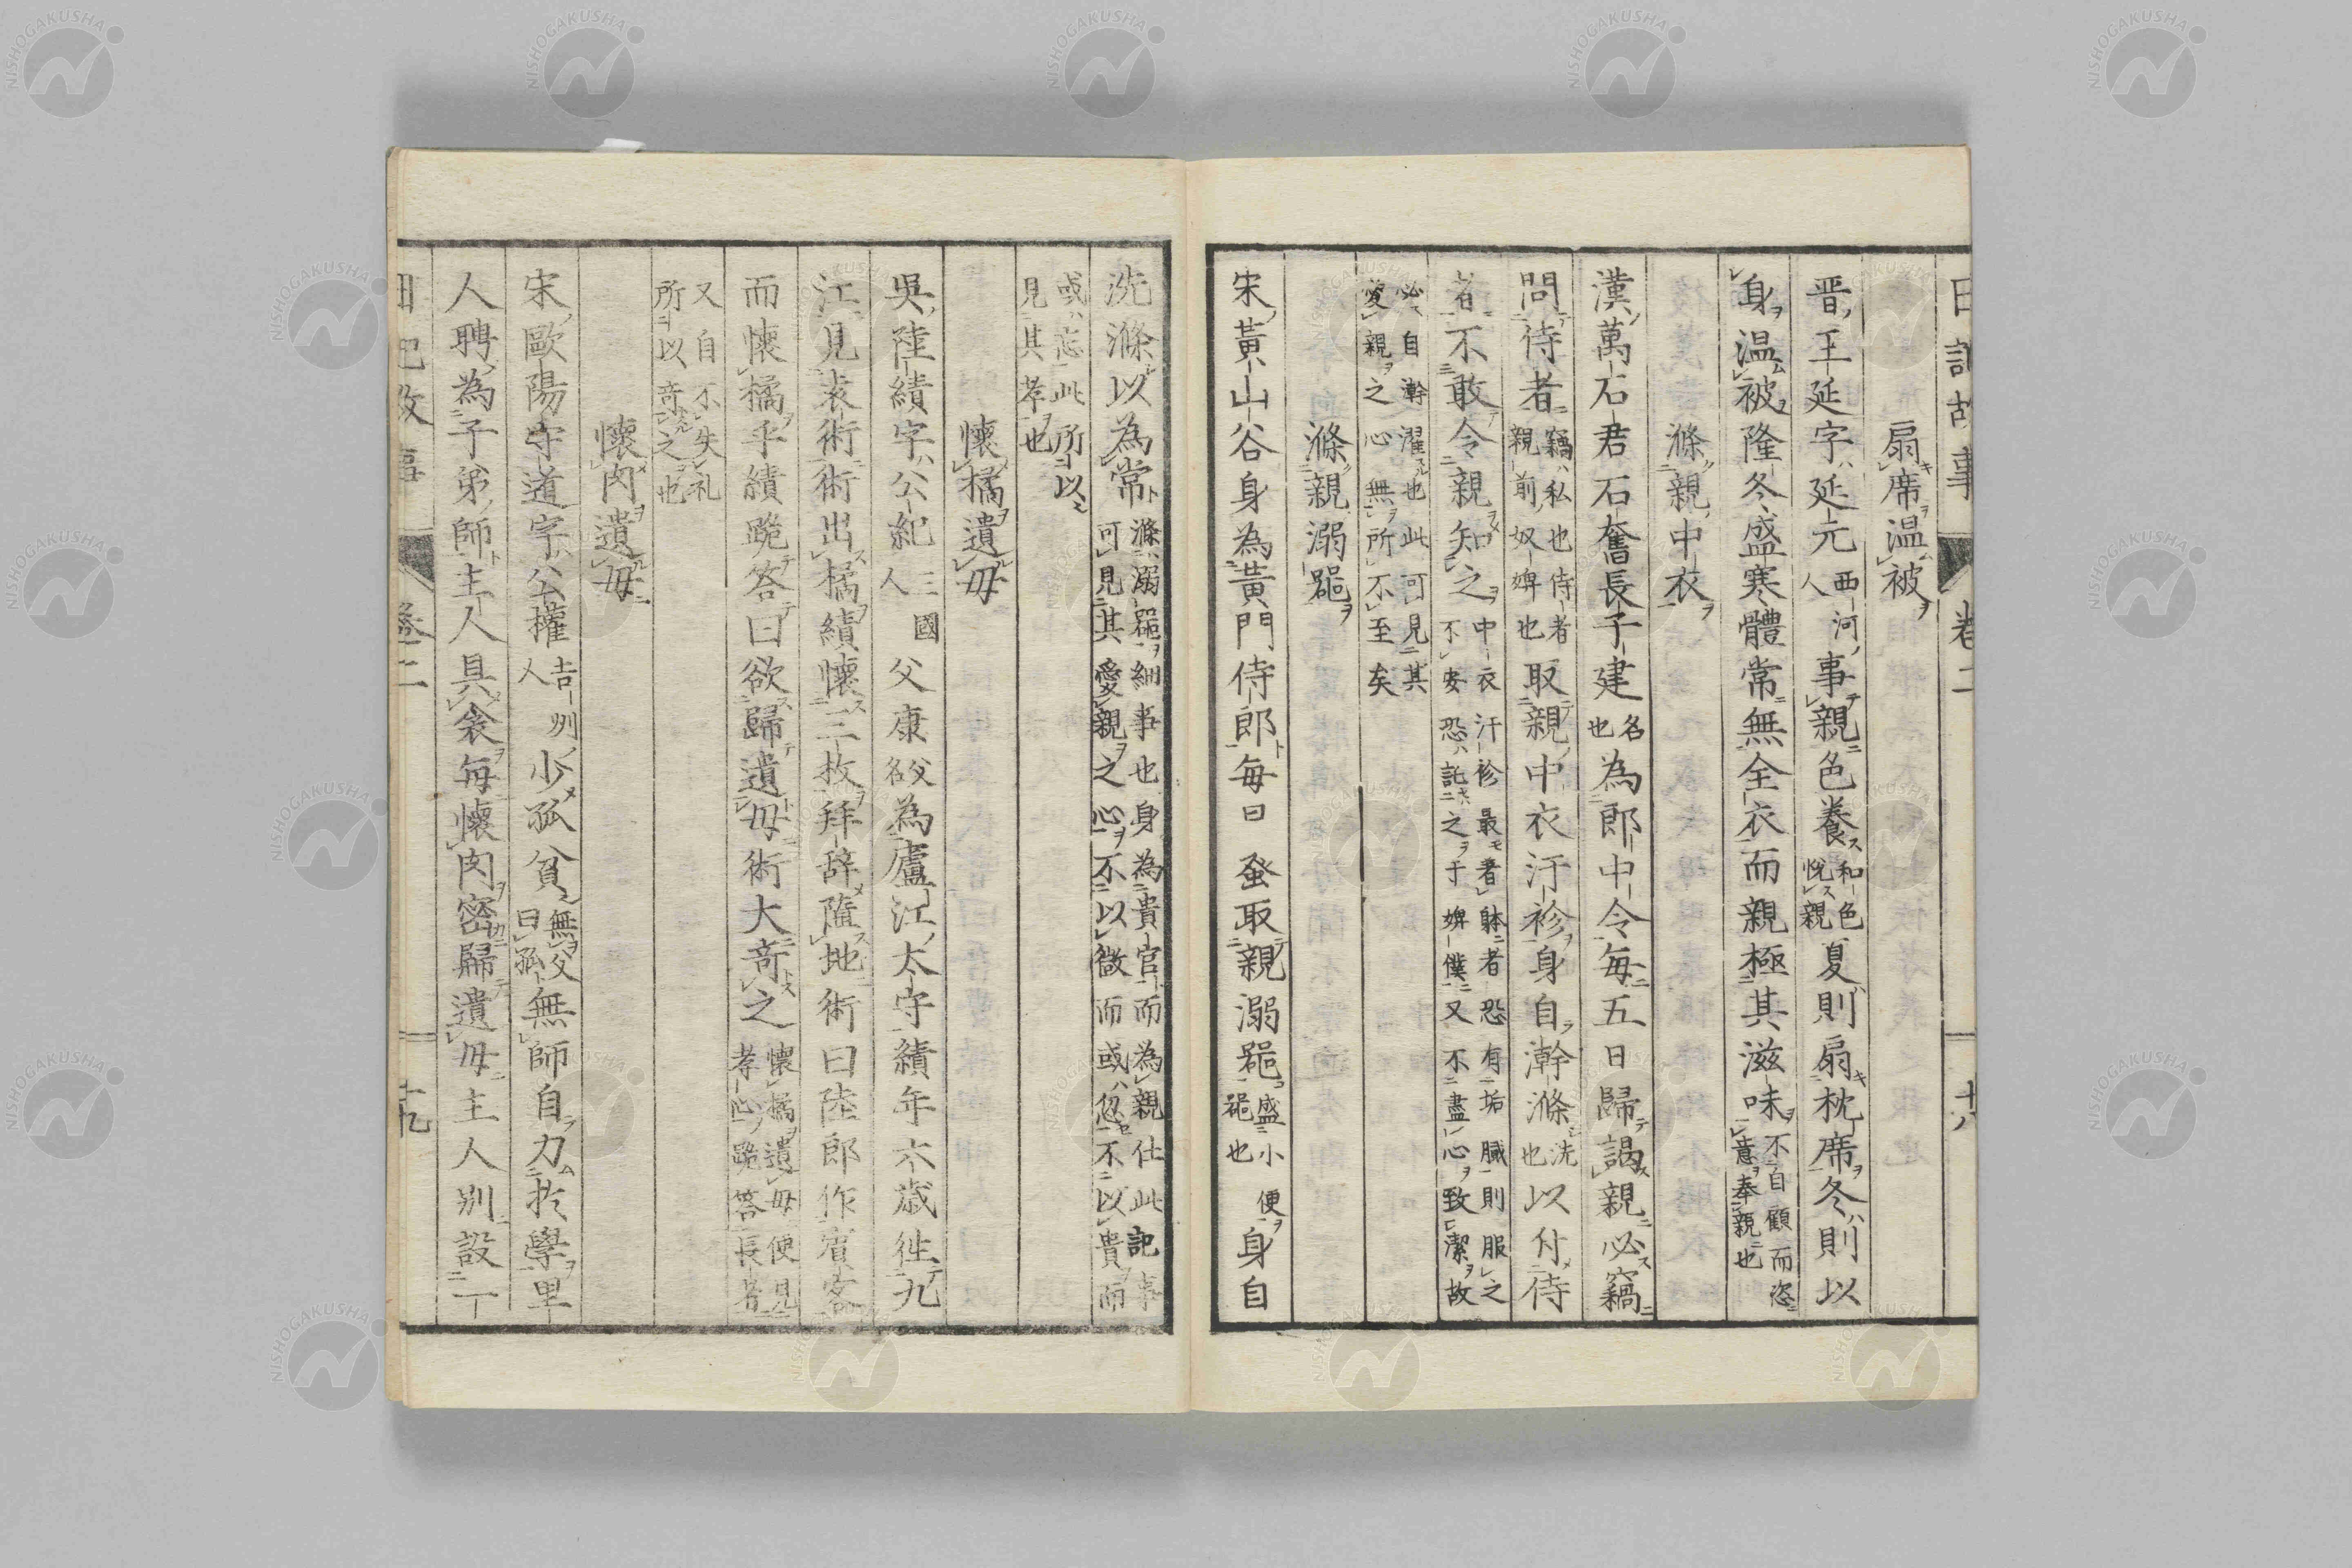 日記故事 卷二 十八
扇席温被
晋王延字延元西河人事親色養和色悅親夏則扇枕席冬則以
身温被隆冬盛寒體常無全衣而親極其滋味不自顧而恣意奉親也
滌親中衣
漢萬石君石奮長子建名也為郎中令每五日歸謁親必竊
問侍者竊私也侍者親前奴婢也取親中衣汗袗身自澣滌洗也以付侍
者不敢令親知之中衣汗袗最著躰者恐有垢膩則服之不安恐託之于婢僕又不盡心致潔故
必自澣濯也此可見其愛親之心無所不至矣
滌親溺器
宋黃山谷身為黃門侍郎每日蚤取親溺器盛小便器也身自
洗滌以為常滌溺器細事也身為貴官而為親仕此記事可見其愛親之心不以微而或忽不以貴而
或忘此所以見其孝也
懷橘遺母
吳陸績字公紀三國人父康父名為廬江太守績年六歲往九
江見袁術術出橘績懷三枚拜辞隨地術曰陸郎作賓客
而懷橘乎績跪答曰欲歸遺母術大奇之懷橘遺母便見孝心跪答長者
又自不失礼所以奇之也
懷肉遺母
宋歐陽守道字公權吉州人少孤貧無父曰孤無師自力於學里
人聘為子弟師主人具飱每懷肉密歸遺母主人別設一
日記故事 卷二 十九
NISHOGAKUSHA